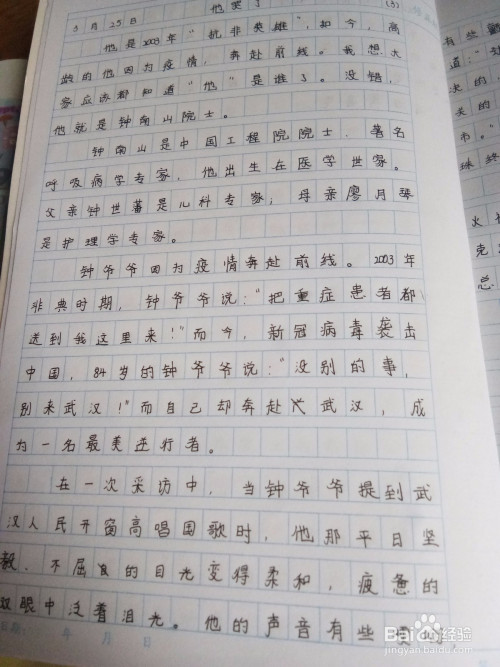 3月25日 他哭了 (3)
他是2003年“抗非英雄”,如今,高
龄的他因为疫情,奔赴前线。我想大
家应该都知道“他”是谁了。没错,
他就是钟南山院士。
钟南山是中国工程院院士、著名
呼吸病学专家,他出生在医学世家。
父亲钟世蕃是儿科专家;母亲廖月琴
是护理学专家。
钟爷爷因为疫情奔赴前线。2003年
非典时期,钟爷爷说:“把重症患者都
送到我这里来!”而今,新冠病毒袭击
中国,84岁的钟爷爷说:“没别的事,
别来武汉!”而自己却奔赴武汉,成
为一名最美逆行者。
在一次采访中,当钟爷爷提到武
汉人民开窗高唱国歌时,他那平日坚
毅、不屈的目光变得柔和,疲惫的
双眼中泛着泪光。他的声音有些
年 月 日
有些
道:“
决的
关的
市。”
珠终
火
克
总
Baidu经验
jingyan.baidu.com